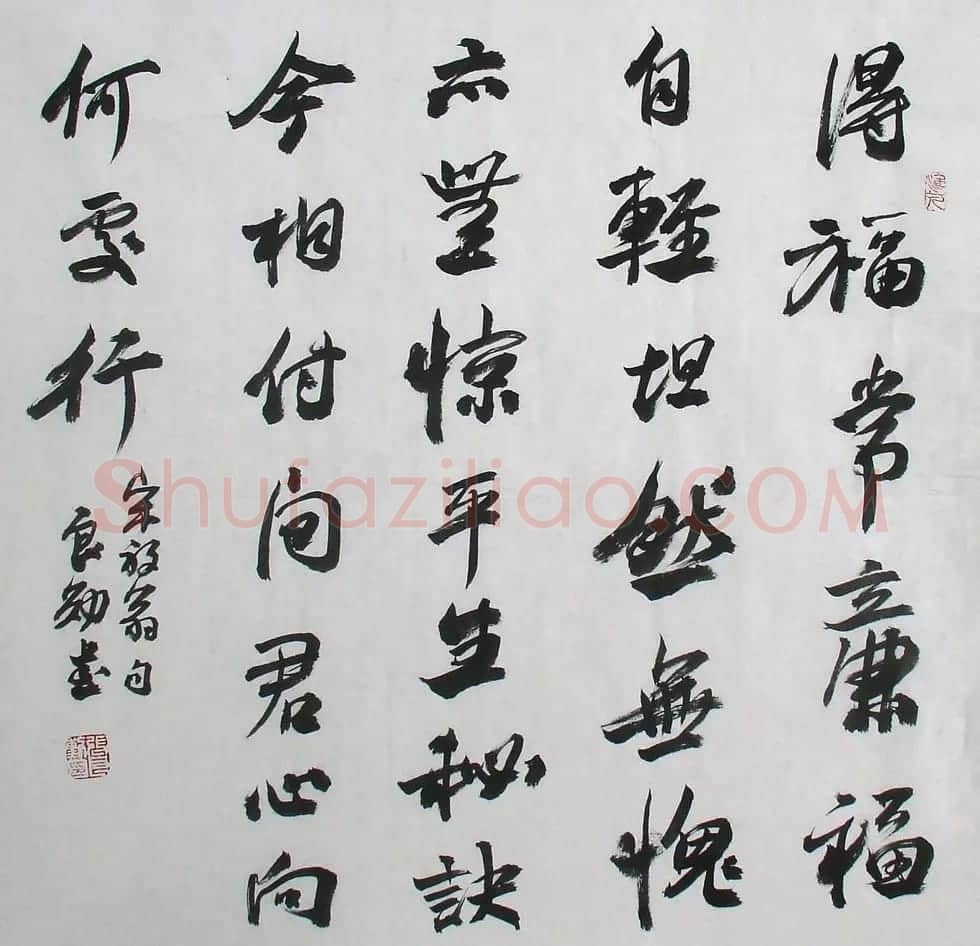 得福常廉福
自輕坦然無愧
亦無惊平生秘訣
今相付问君心向
何處行
宋放翁句
良勋書
Shufaziliao.COM